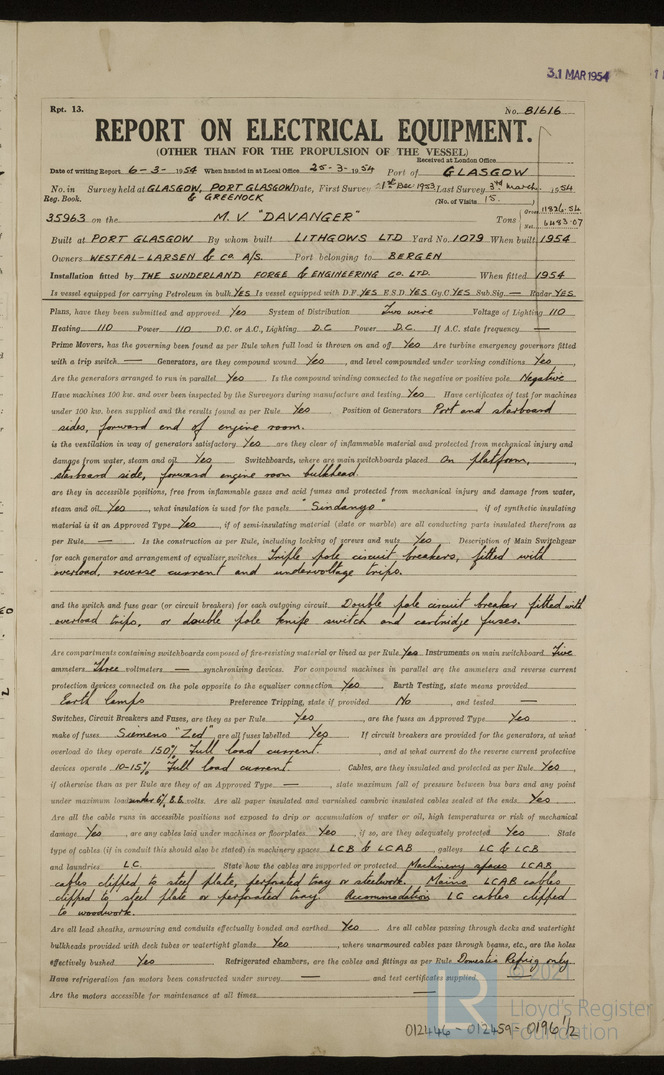 31 MAR 1954
Rpt. 13.
No. 81616
REPORT ON ELECTRICAL EQUIPMENT.
(OTHER THAN FOR THE PROPULSION OF THE VESSEL)
Received at London Office
Date of writing Report 6-3-1954 When handed in at Local Office 25-3-1954 Port of GLASGOW
No. in Reg. Book. Survey held at GLASGOW, PORT GLASGOW & GREENOCK Date, First Survey 21st Dec 1953 Last Survey 3rd March 1954
(No. of Visits 15.)
35963 on the M.V. "DAVANGER" Tons Gross 11826.54 Net 6483.07
Built at PORT GLASGOW By whom built LITHGOWS LTD Yard No. 1079 When built 1954
Owners WESTFAL-LARSEN & Co. A/S. Port belonging to BERGEN
Installation fitted by THE SUNDERLAND FORGE & ENGINEERING CO. LTD. When fitted 1954
Is vessel equipped for carrying Petroleum in bulk YES Is vessel equipped with D.F. YES E.S.D. YES Gy.C. YES Sub.Sig. — Radar YES
Plans, have they been submitted and approved Yes System of Distribution Two wire Voltage of Lighting 110
Heating 110 Power 110 D.C. or A.C., Lighting D.C. Power D.C. If A.C. state frequency —
Prime Movers, has the governing been found as per Rule when full load is thrown on and off Yes Are turbine emergency governors fitted
with a trip switch — Generators, are they compound wound Yes, and level compounded under working conditions Yes,
Are the generators arranged to run in parallel Yes Is the compound winding connected to the negative or positive pole Negative
Have machines 100 kw. and over been inspected by the Surveyors during manufacture and testing Yes Have certificates of test for machines
under 100 kw. been supplied and the results found as per Rule Yes. Position of Generators Port and starboard
sides, forward end of engine room.
is the ventilation in way of generators satisfactory Yes are they clear of inflammable material and protected from mechanical injury and
damage from water, steam and oil Yes Switchboards, where are main switchboards placed On platform,
starboard side, forward engine room bulkhead.
are they in accessible positions, free from inflammable gases and acid fumes and protected from mechanical injury and damage from water,
steam and oil Yes, what insulation is used for the panels "Sindanyo", if of synthetic insulating
material is it an Approved Type Yes, if of semi-insulating material (slate or marble) are all conducting parts insulated therefrom as
per Rule — Is the construction as per Rule, including locking of screws and nuts Yes. Description of Main Switchgear
for each generator and arrangement of equaliser switches Triple pole circuit breakers, fitted with
overload, reverse current and undervoltage trips.
and the switch and fuse gear (or circuit breakers) for each outgoing circuit Double pole circuit breaker fitted with
overload trips, or double pole knife switch and cartridge fuses.
Are compartments containing switchboards composed of fire-resisting material or lined as per Rule Yes Instruments on main switchboard Five
ammeters Three voltmeters — synchronising devices. For compound machines in parallel are the ammeters and reverse current
protection devices connected on the pole opposite to the equaliser connection Yes. Earth Testing, state means provided
Earth lamps Preference Tripping, state if provided No, and tested —
Switches, Circuit Breakers and Fuses, are they as per Rule Yes, are the fuses an Approved Type Yes
make of fuses Siemens "Zed" are all fuses labelled Yes If circuit breakers are provided for the generators, at what
overload do they operate 150% Full load current., and at what current do the reverse current protective
devices operate 10-15% Full load current Cables, are they insulated and protected as per Rule Yes,
if otherwise than as per Rule are they of an Approved Type —, state maximum fall of pressure between bus bars and any point
under maximum load under 6% volts. Are all paper insulated and varnished cambric insulated cables sealed at the ends Yes.
Are all the cable runs in accessible positions not exposed to drip or accumulation of water or oil, high temperatures or risk of mechanical
damage Yes, are any cables laid under machines or floorplates Yes, if so, are they adequately protected Yes State
type of cables (if in conduit this should also be stated) in machinery spaces LCB & LCAB, galleys LC & LCB
and laundries LC. State how the cables are supported or protected Machinery spaces LCAB
cables clipped to steel plate, perforated tray or steelwork. Mains LCAB cables
clipped to steel plate or perforated tray. Accommodation LC cables clipped
to woodwork.
Are all lead sheaths, armouring and conduits effectually bonded and earthed Yes Are all cables passing through decks and watertight
bulkheads provided with deck tubes or watertight glands Yes, where unarmoured cables pass through beams, etc., are the holes
effectively bushed Yes Refrigerated chambers, are the cables and fittings as per Rule Domestic Refrig only
Have refrigeration fan motors been constructed under survey — and test certificates supplied
Are the motors accessible for maintenance at all times —
© 2021
LR Lloyd's Register
Foundation
012446-012459-0196 1/2